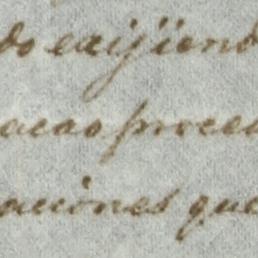 do exijiend
acaso proced
aciones que